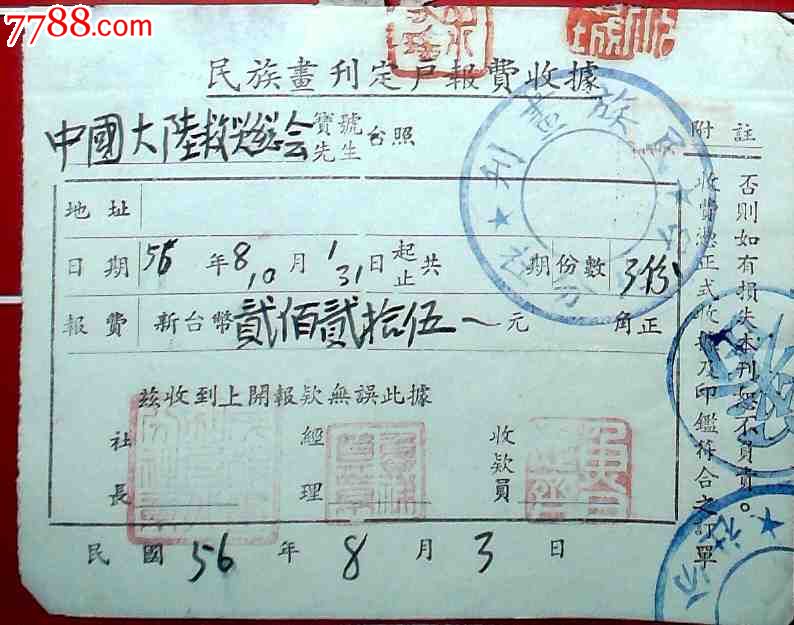 7788.com
中国收藏热线
民族畫刊定戶報費收據
中國大陸救災總会 寶號 先生 台照
地址
日期 56 年 8 10 月 1 31 日 起 止 共 期 份數 3份
報費 新台幣 貳佰貳拾伍 元 角正
茲收到上開報欵無誤此據
社長
經理
收欵員
民國 56 年 8 月 3 日
附註
收費憑正式收據及印鑑符合之訂單
否則如有損失本刊恕不負責。